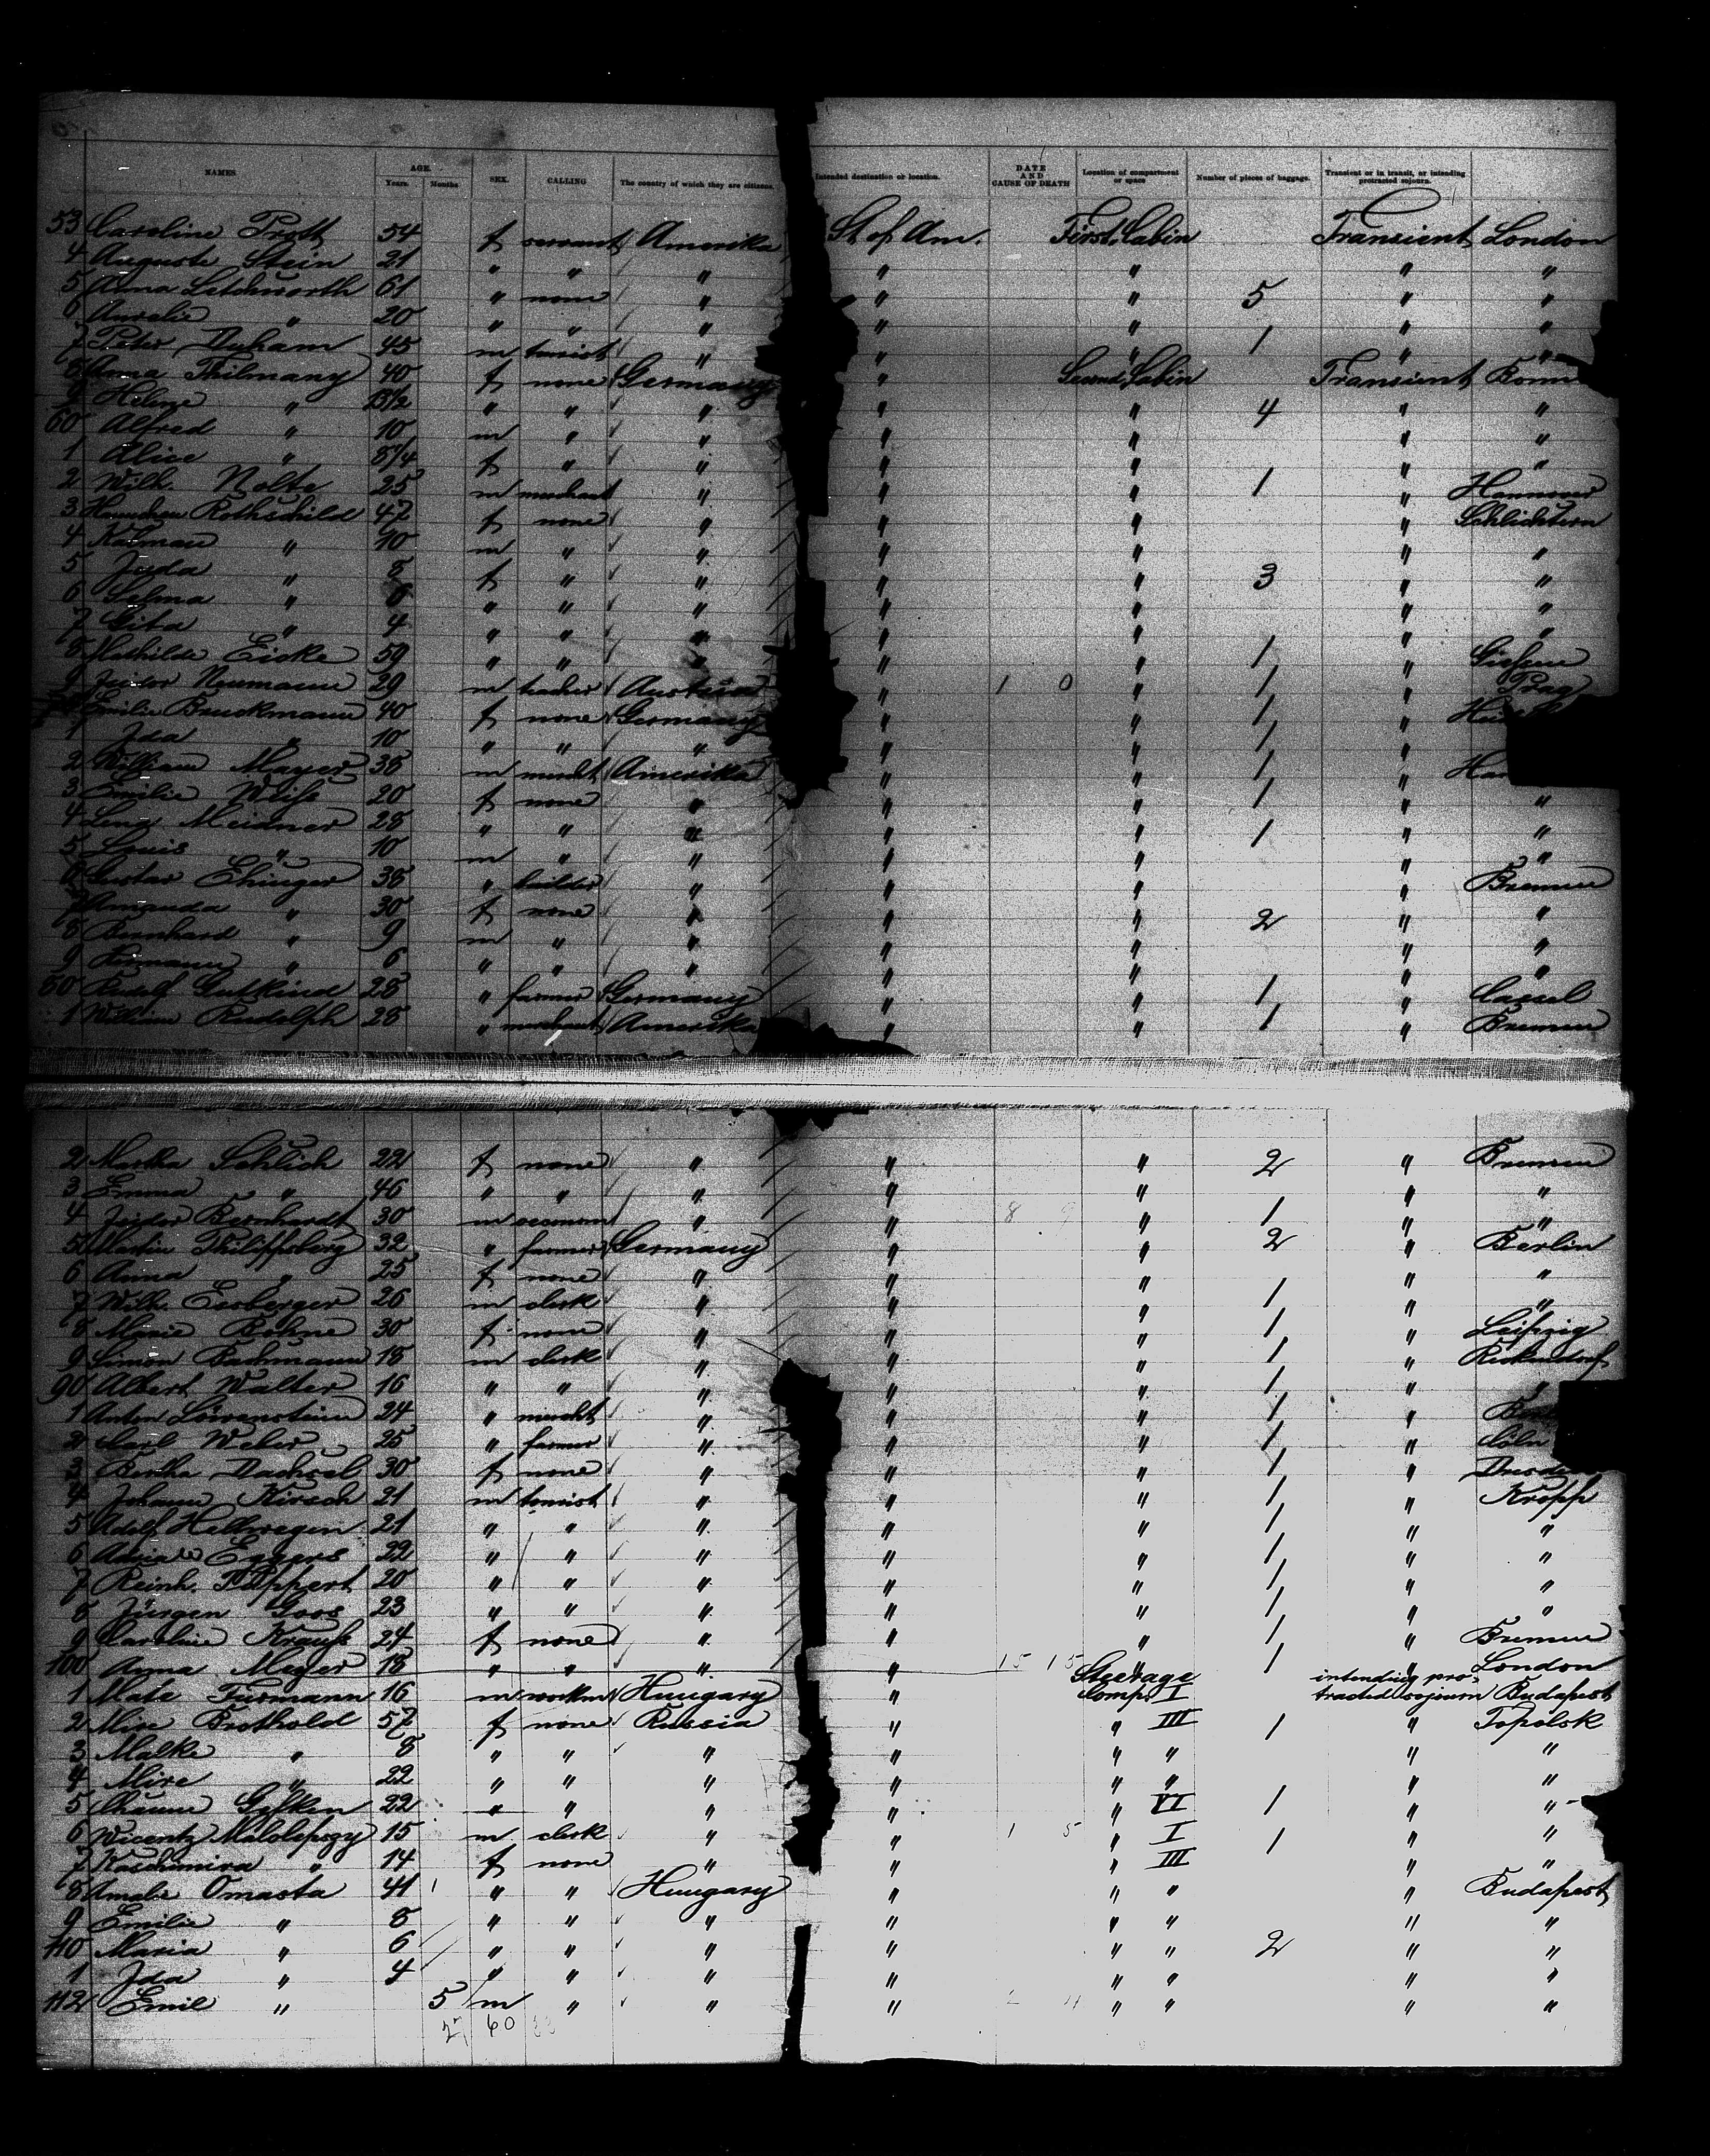 NAMES. AGE. Years. Months. SEX. CALLING The country of which they are citizens. Intended destination or location. DATE AND CAUSE OF DEATH Location of compartment or space Number of pieces of baggage. Transient or in transit, or intending protracted sojourn.
53 Caroline Prott 54 f servant Amerika St of Am. First Cabin Transient London
4 Auguste Stein 21 " " " " " " "
5 Anna Letchworth 61 " none " " " 5 " "
6 Aurelie " 20 " " " " " " "
7 Peter Duham 45 m tourist " " " 1 " "
8 Anna Thilmany 40 f none Germany " Second Cabin Transient Bonn
9 Helene " " " " " " 4 " "
60 Alfred " 10 m " " " " " "
1 Alice " f " " " " " "
2 Wilh. Nolte 25 m merchant " " " 1 " Hannover
3 Rothschild 42 f none " " " " Schlüchtern
4 Kalman " 10 m " " " " " "
5 " 8 f " " " " 3 " "
6 Selma " 6 " " " " " " "
7 Gita " 4 " " " " " " "
8 Mathilde Eicke 59 " " " " " 1 " Giessen
9 Neumann 29 m teacher Austria " 1 0 " 1 " Prag
Emilie Bruckmann 40 f none Germany " " 1 "
1 Ida " 10 " " " " " 1 "
2 William Mayer 38 m mercht Amerika " " 1 " Han
3 Emilie Weiß 20 f none " " " 1 " "
4 Lena Meidner 28 " " " " " 1 " "
5 Louis " 10 m " " " " " "
6 Gustav Ehinger 38 " builder " " " " Bremen
7 Amanda " 30 f none " " " 2 " "
8 Bernhard " 9 m " " " " " "
9 Hermann " 6 " " " " " " "
80 Rudolf Gutkind 28 " farmer Germany " " 1 " Cassel
1 William Rudolph 28 " merchant Amerika " " 1 " Bremen
2 Martha Schlich 22 f none " " " 2 " Bremen
3 Emma " 46 " " " " " " "
4 Isidor Bernhardt 30 m " " 8 9 " 1 " "
5 Martin Philippsborg 32 " farmer Germany " " 2 " Berlin
6 Anna " 25 f none " " " " "
7 Wilh. Eesberger 26 m clerk " " " 1 " "
8 Marie Böhme 30 f none " " " 1 " Leipzig
9 Simon Bachmann 18 m clerk " " " 1 "
90 Albert Walter 16 " " " " " 1 " "
1 Anton Löwenstein 24 " mercht " " " 1 "
2 Carl Weber 25 " farmer " " " 1 " Cöln
3 Bertha Dachsel 30 f none " " " 1 " Dresden
4 Johann Kirsch 21 m tourist " " " 1 " Kropp
5 Adolf Hellwegen 21 " " " " " 1 " "
6 Eggers 22 " " " " " 1 " "
7 Reinh. Tappert 20 " " " " " 1 " "
8 Jürgen Goos 23 " " " " " 1 " "
9 Caroline Krauß 24 f none " " " 1 " Bremen
100 Anna Meyer 18 " " " " 15 15 " 1 " London
1 Mate Furmann 16 m workm Hungary " Steerage Comp. I intending protracted sojourn Budapest
2 Mire Brothold 57 f none Russia " " III 1 " Topolsk
3 Malke " 8 " " " " " " " "
4 Mire " 22 " " " " " " " "
5 22 " " " " " VI 1 " "
6 Wicentz Malolepszy 15 m clerk " " 1 5 " I 1 " "
7 Kaschimira " 14 f none " " " III " "
8 Amalie Omasta 41 " " Hungary " " " " Budapest
9 Emilie " 8 " " " " " " " "
110 Maria " 6 " " " " " " 2 " "
1 Ida " 4 " " " " " " " "
112 Emil " 5 m " " " " " " "
27 60